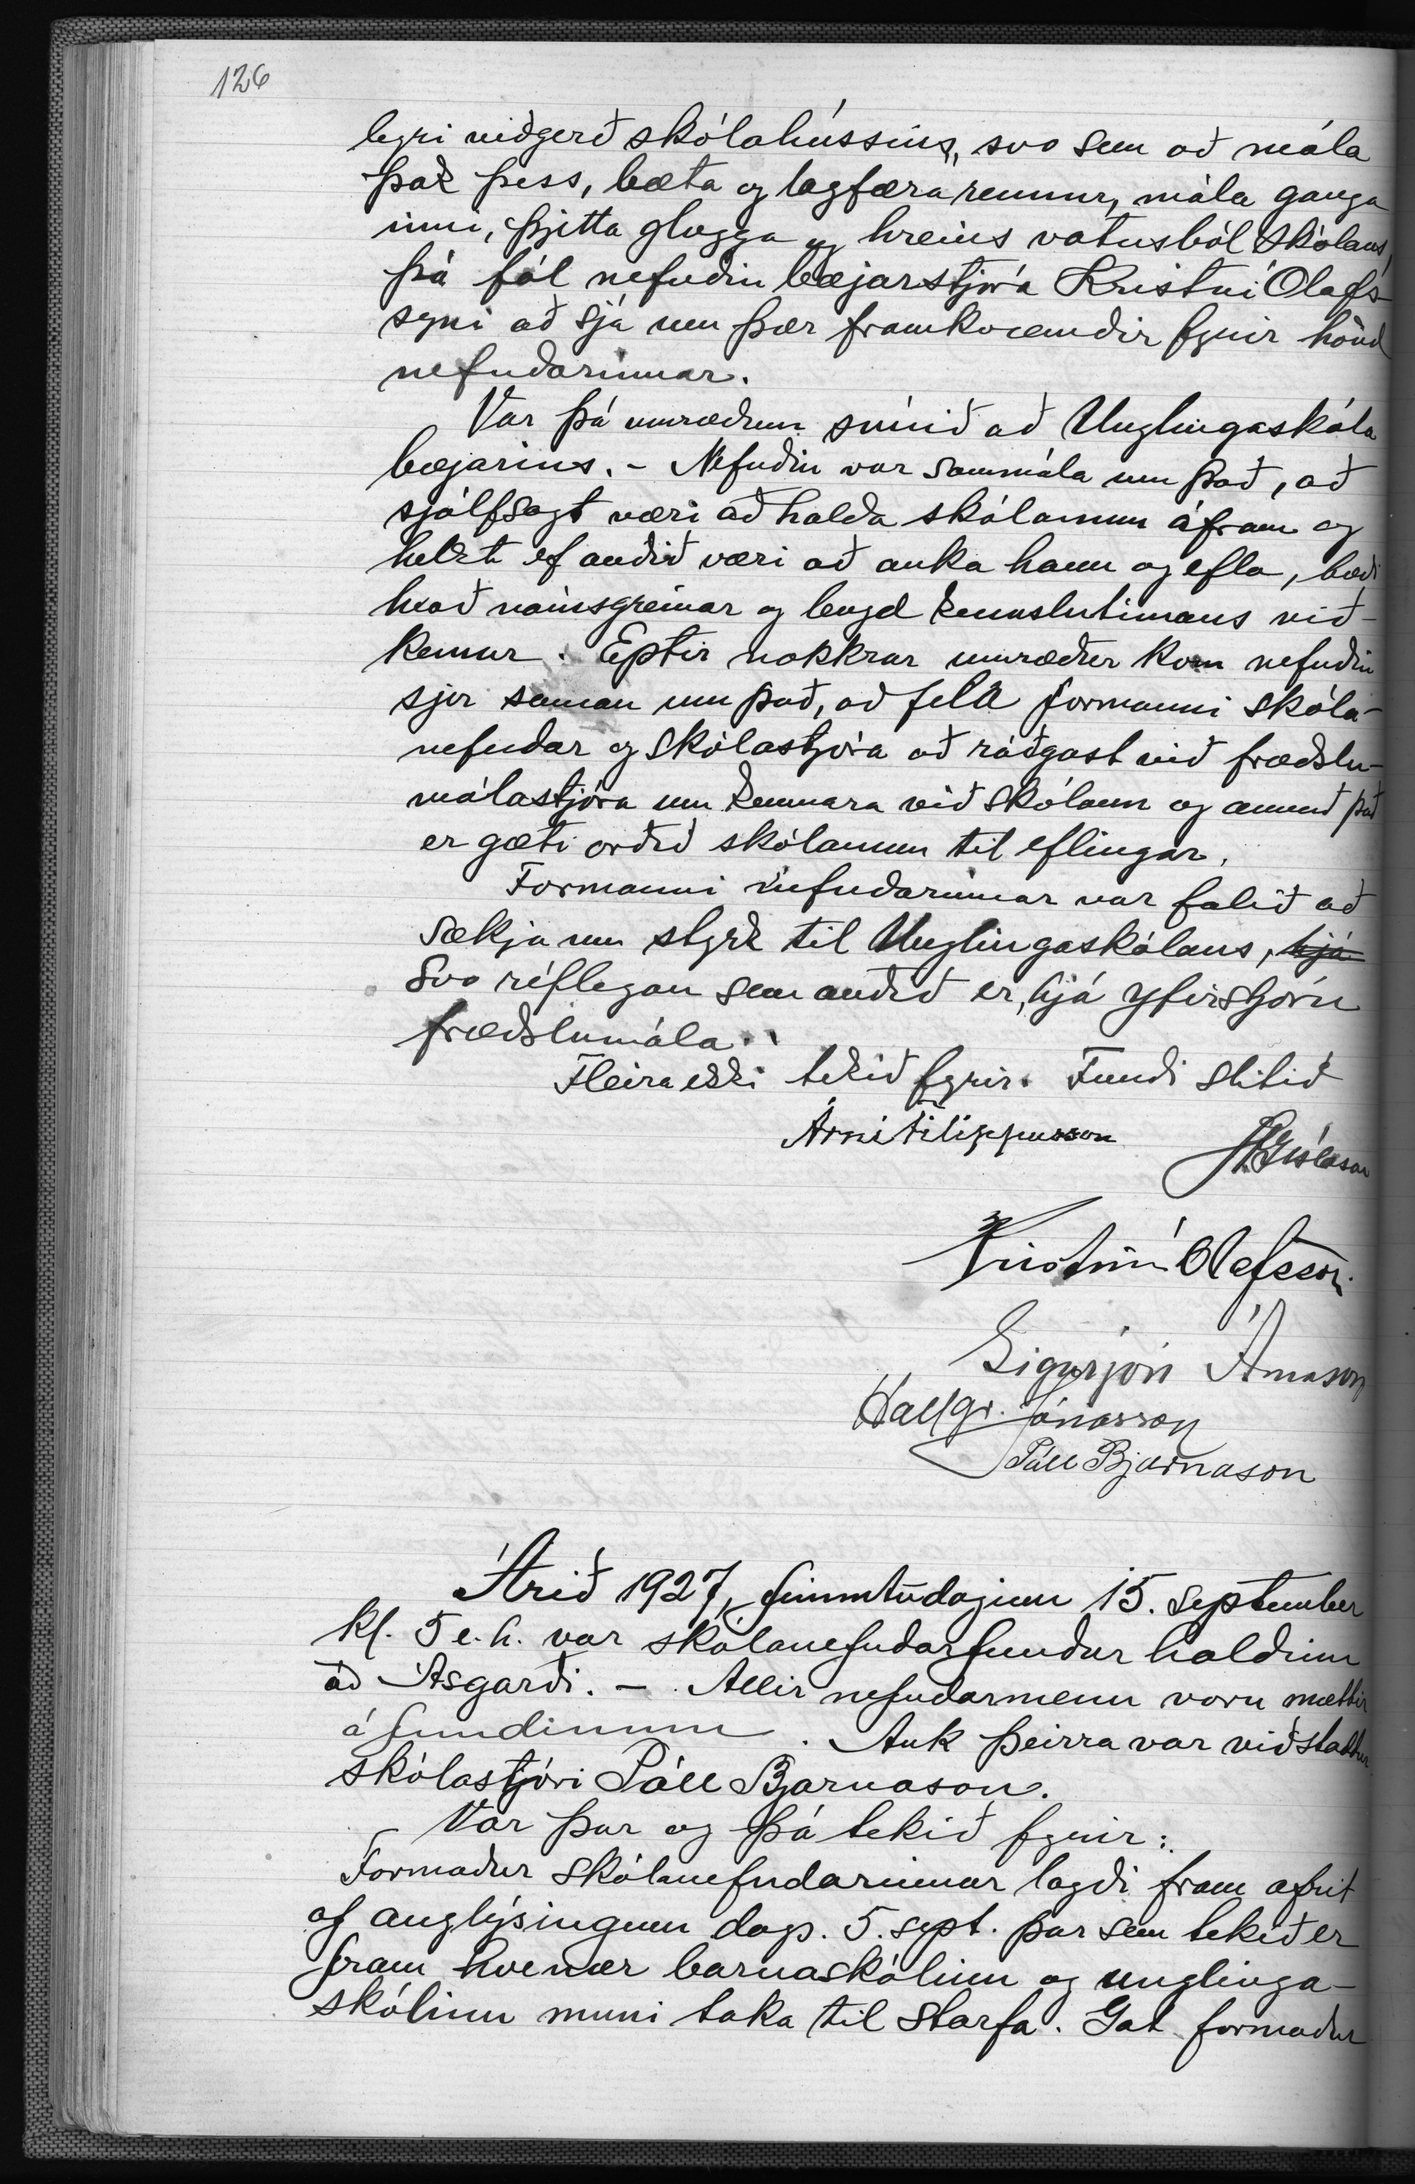 126
legri viðgerð skólahússins, svo sem að mála
þak þess, bæta og lagfæra rennur, mála ganga
inni, þjetta glugga og hreins vatnsból skólans,
þá fól nefndin bæjarstjóra Kristni Ólafs-
syni að sjá um þær framkvæmdir fyrir hönd
nefndarinnar.
Var þá umræðum snúið að Unglingaskóla
bæjarins. - Nefndin var sammála um það, að
sjálfsagt væri að halda skólanum áfram og
helzt ef auðið væri að auka hann og efla, bæði
hvað námsgreinar og lengd kennslutímans við-
kemur. Eptir nokkrar umræður kom nefndin
sjer saman um það, að fela formanni skóla-
nefndar og skólastjóra að ráðgast við fræðslu-
málastjóra um kennara við skólann og annað það
er gæti orðið skólanum til eflingar.
Formanni nefndarinnar var falið að
sækja um styrk til Unglingaskólans, hjá
svo ríflegan sem auðið er, hjá yfirstjórn
fræðslumála.
Fleira ekki tekið fyrir. Fundi slitið
Árni Filippusson
Gíslason
Kristinn Ólafsson.
Sigurjón Árnason
Hallgr. Jónasson
Páll Bjarnason
Árið 1927, fimmtudaginn 15. september
kl. 5 e.h. var skólanefndarfundur haldinn
að Ásgarði. - Allir nefndarmenn voru mættir
á fundinum. Auk þeirra var viðstaddur
skólastjóri Páll Bjarnason.
Var þar og þá tekið fyrir:
Formaður skólanefndarinnar lagði fram afrit
af auglýsingum dags. 5. sept. þar sem tekið er
fram hvenær barnaskólinn og unglinga-
skólinn muni taka til starfa. Gat formaður